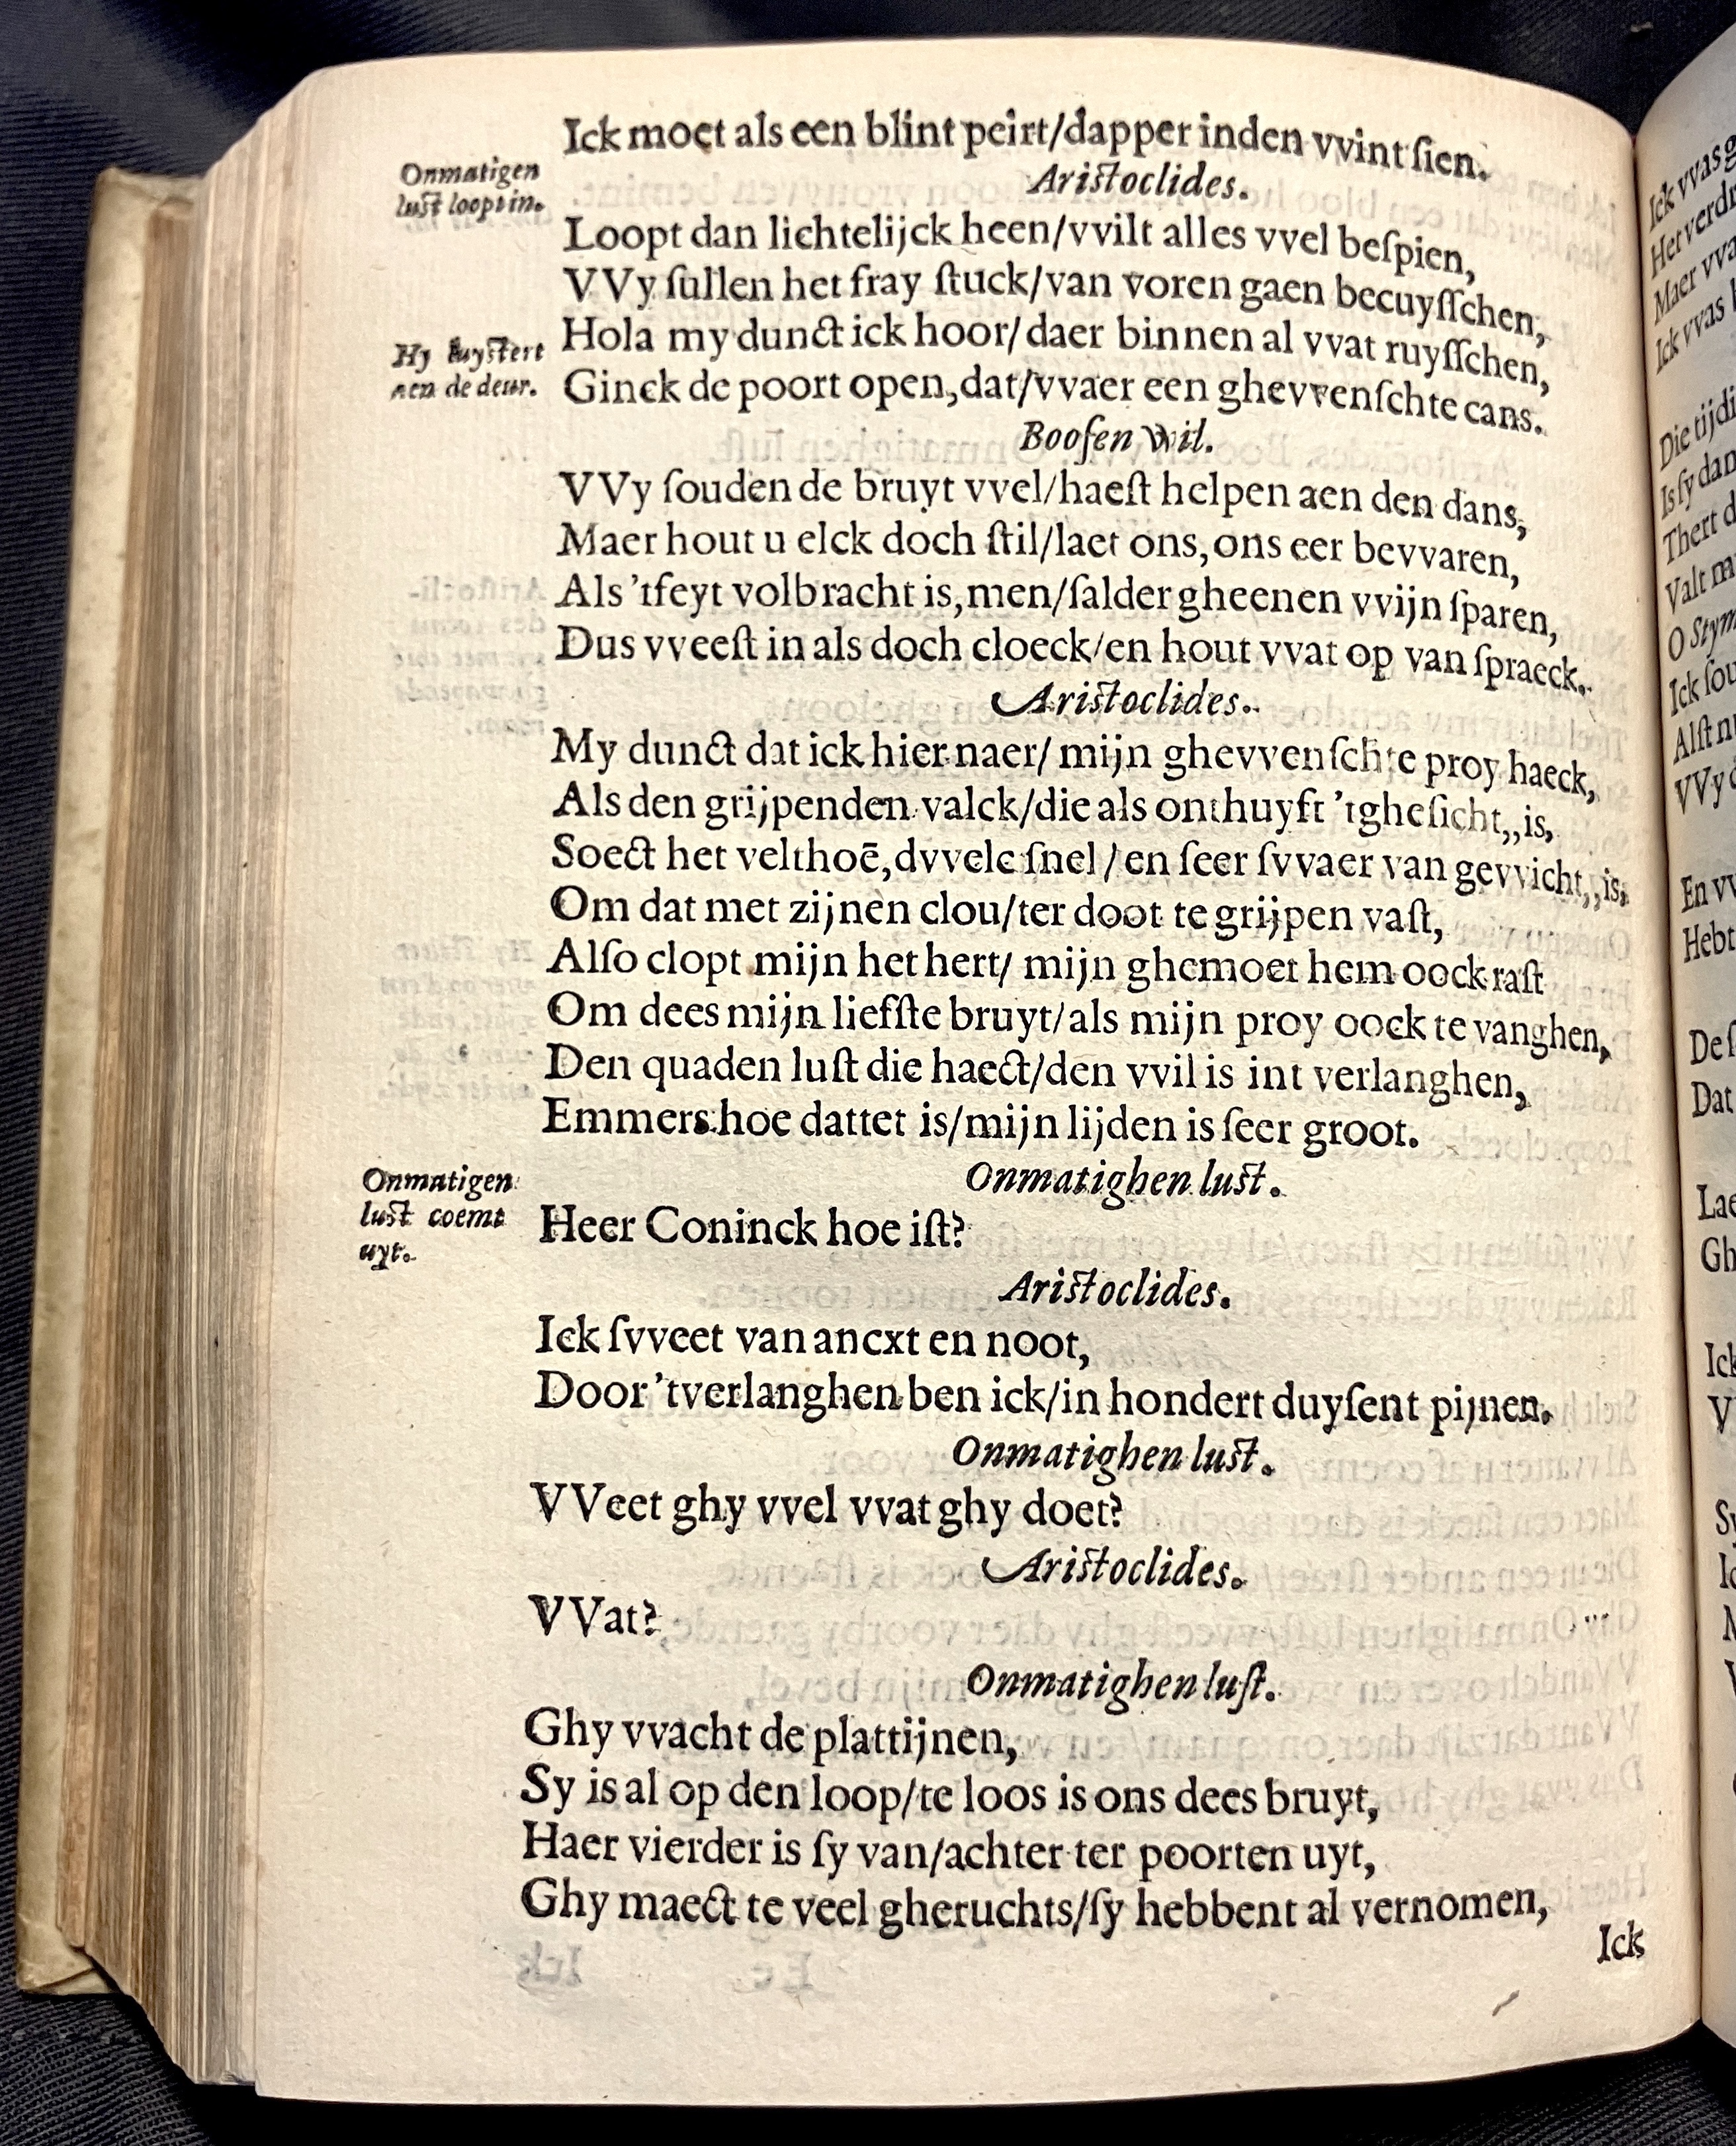 Ick moet als een blint peirt/dapper inden vvint ſien.
Onmatigen
luſt loopt in.
Ariſtoclides.
Loopt dan lichtelijck heen/vvilt alles vvel beſpien,
VVy ſullen het fray ſtuck/van voren gaen becuyſſchen,
Hy luyſtert
aen de deur.
Hola my dunct ick hoor/daer binnen al vvat ruyſſchen,
Ginck de poort open,dat/vvaer een ghevvenſchte cans.
Booſen wil.
VVy ſouden de bruyt vvel/haeſt helpen aen den dans,
Maer hout u elck doch ſtil/laet ons,ons eer bevvaren,
Als 'tfeyt volbracht is,men/ſalder gheenen vvijn ſparen,
Dus vveeſt in als doch cloeck/en hout vvat op van ſpraeck.
Ariſtoclides.
My dunct dat ick hier naer/ mijn ghevvenſchte proy haeck,
Als den grijpenden valck/die als onthuyft 'tgheſicht,,is,
Soect het velthoē,dvvele ſnel/en ſeer ſvvaer van gevvicht,,is,
Om dat met zijnen clou/ter doot te grijpen vaſt,
Alſo clopt mijn het hert/ mijn ghemoet hem oock raſt
Om dees mijn liefſte bruyt/als mijn proy oock te vanghen,
Den quaden luſt die haect/den vvil is int verlanghen,
Emmers hoe dattet is/mijn lijden is ſeer groot.
Onmatighen luſt.
Onmatigen
luſt coemt
uyt.
Heer Coninck hoe iſt?
Ariſtoclides.
Ick ſvveet van ancxt en noot,
Door 'tverlanghen ben ick/in hondert duyſent pijnen.
Onmatighen luſt.
VVeet ghy vvel vvat ghy doet?
Ariſtoclides.
VVat?
Onmatighen luſt.
Ghy vvacht de plattijnen,
Sy is al op den loop/te loos is ons dees bruyt,
Haer vierder is ſy van/achter ter poorten uyt,
Ghy maect te veel gheruchts/ſy hebbent al vernomen,
Ick